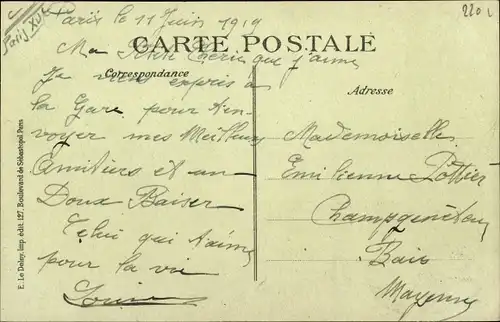 Paris le 11 Juin 1919
220
Paris XV
CARTE POSTALE
Ma Petite Chérie que j'aime
Correspondance
Adresse
Je viens exprès a
la Gare pour t'en-
voyer mes Meilleurs
Amitiers et un
Doux Baiser
Celui qui t'aime
pour la vie
Louis
Mademoiselle
Emilienne Pottier
Champgenéteux
Bais
Mayenne
E. Le Deley, imp. édit. 127, Boulevard de Sébastopol, Paris